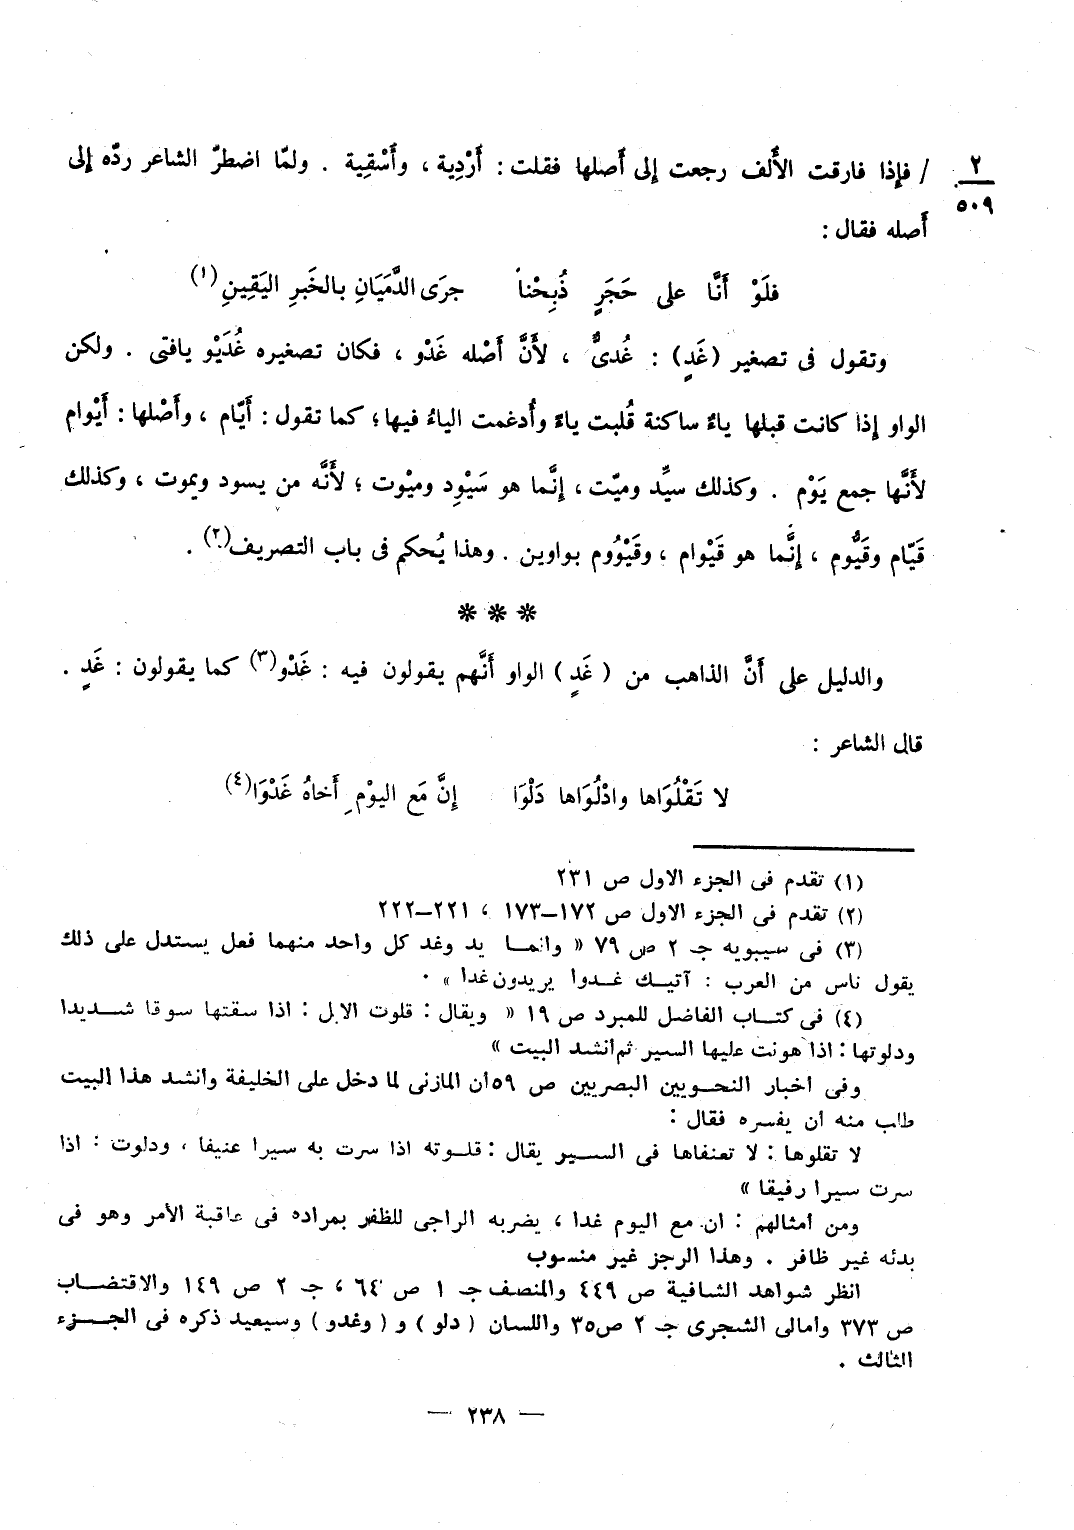 ٢
٥٠٩
/ فإذا فارقت الأَلف رجعت إلى أَصلها فقلت : أَرْدِية ، وأَسْقِية . ولمّا اضطرّ الشاعر ردّه إلى
أَصله فقال :
فلَوْ أَنَّا على حَجَرٍ ذُبِحْنا جرَى الدَّمَيَانِ بالخَبرِ اليَقِينِ(١)
وتقول فى تصغير (غَدٍ) : غُدىٌّ ، لأَنَّ أَصْله غَدْو ، فكان تصغيره غُدَيْو يافتى . ولكن
الواو إذا كانت قبلها ياءٌ ساكنة قُلبت ياءً وأُدغمت الياءُ فيها ؛ كما تقول : أَيّام ، وأَصْلها : أَيْوام
لأَنَّها جمع يَوْم . وكذلك سيِّد وميّت ، إنَّما هو سَيْوِد وميْوت ؛ لأَنَّه من يسود ويموت ، وكذلك
قَيّام وقَيُّوم ، إنَّما هو قَيْوام ، وقَيْوُوم بواوين . وهذا يُحكم فى باب التصريف(٢) .
❋ ❋ ❋
والدليل على أَنَّ الذاهب من ( غَدٍ ) الواو أَنَّهم يقولون فيه : غَدْو(٣) كما يقولون : غَدٍ .
قال الشاعر :
لا تَقْلُوَاها وادْلُوَاها دَلْوَا إنَّ مَع اليوْمِ أَخاهُ غَدْوَا(٤)
(١) تقدم فى الجزء الاول ص ٢٣١
(٢) تقدم فى الجزء الاول ص ١٧٢–١٧٣ ، ٢٢١–٢٢٢
(٣) فى سيبويه جـ ٢ ص ٧٩ « وانما يد وغد كل واحد منهما فعل يستدل على ذلك
يقول ناس من العرب : آتيك غدوا يريدون غدا » .
(٤) فى كتاب الفاضل للمبرد ص ١٩ « ويقال : قلوت الابل : اذا سقتها سوقا شديدا
ودلوتها : اذا هونت عليها السير ثم أنشد البيت »
وفى اخبار النحويين البصريين ص ٥٩ أن المازنى لما دخل على الخليفة وأنشد هذا البيت
طلب منه أن يفسره فقال :
لا تقلوها : لا تعنفاها فى السير يقال : قلوته اذا سرت به سيرا عنيفا ، ودلوت : اذا
سرت سيرا رفيقا »
ومن أمثالهم : ان مع اليوم غدا ، يضربه الراجى للظفر بمراده فى عاقبة الأمر وهو فى
بدئه غير ظافر . وهذا الرجز غير منسوب
انظر شواهد الشافية ص ٤٤٩ والمنصف جـ ١ ص ٦٤ ، جـ ٢ ص ١٤٩ والاقتضاب
ص ٣٧٣ وأمالى الشجرى جـ ٢ ص ٣٥ واللسان ( دلو ) و ( وغدو ) وسيعيد ذكره فى الجزء
الثالث .
— ٢٣٨ —